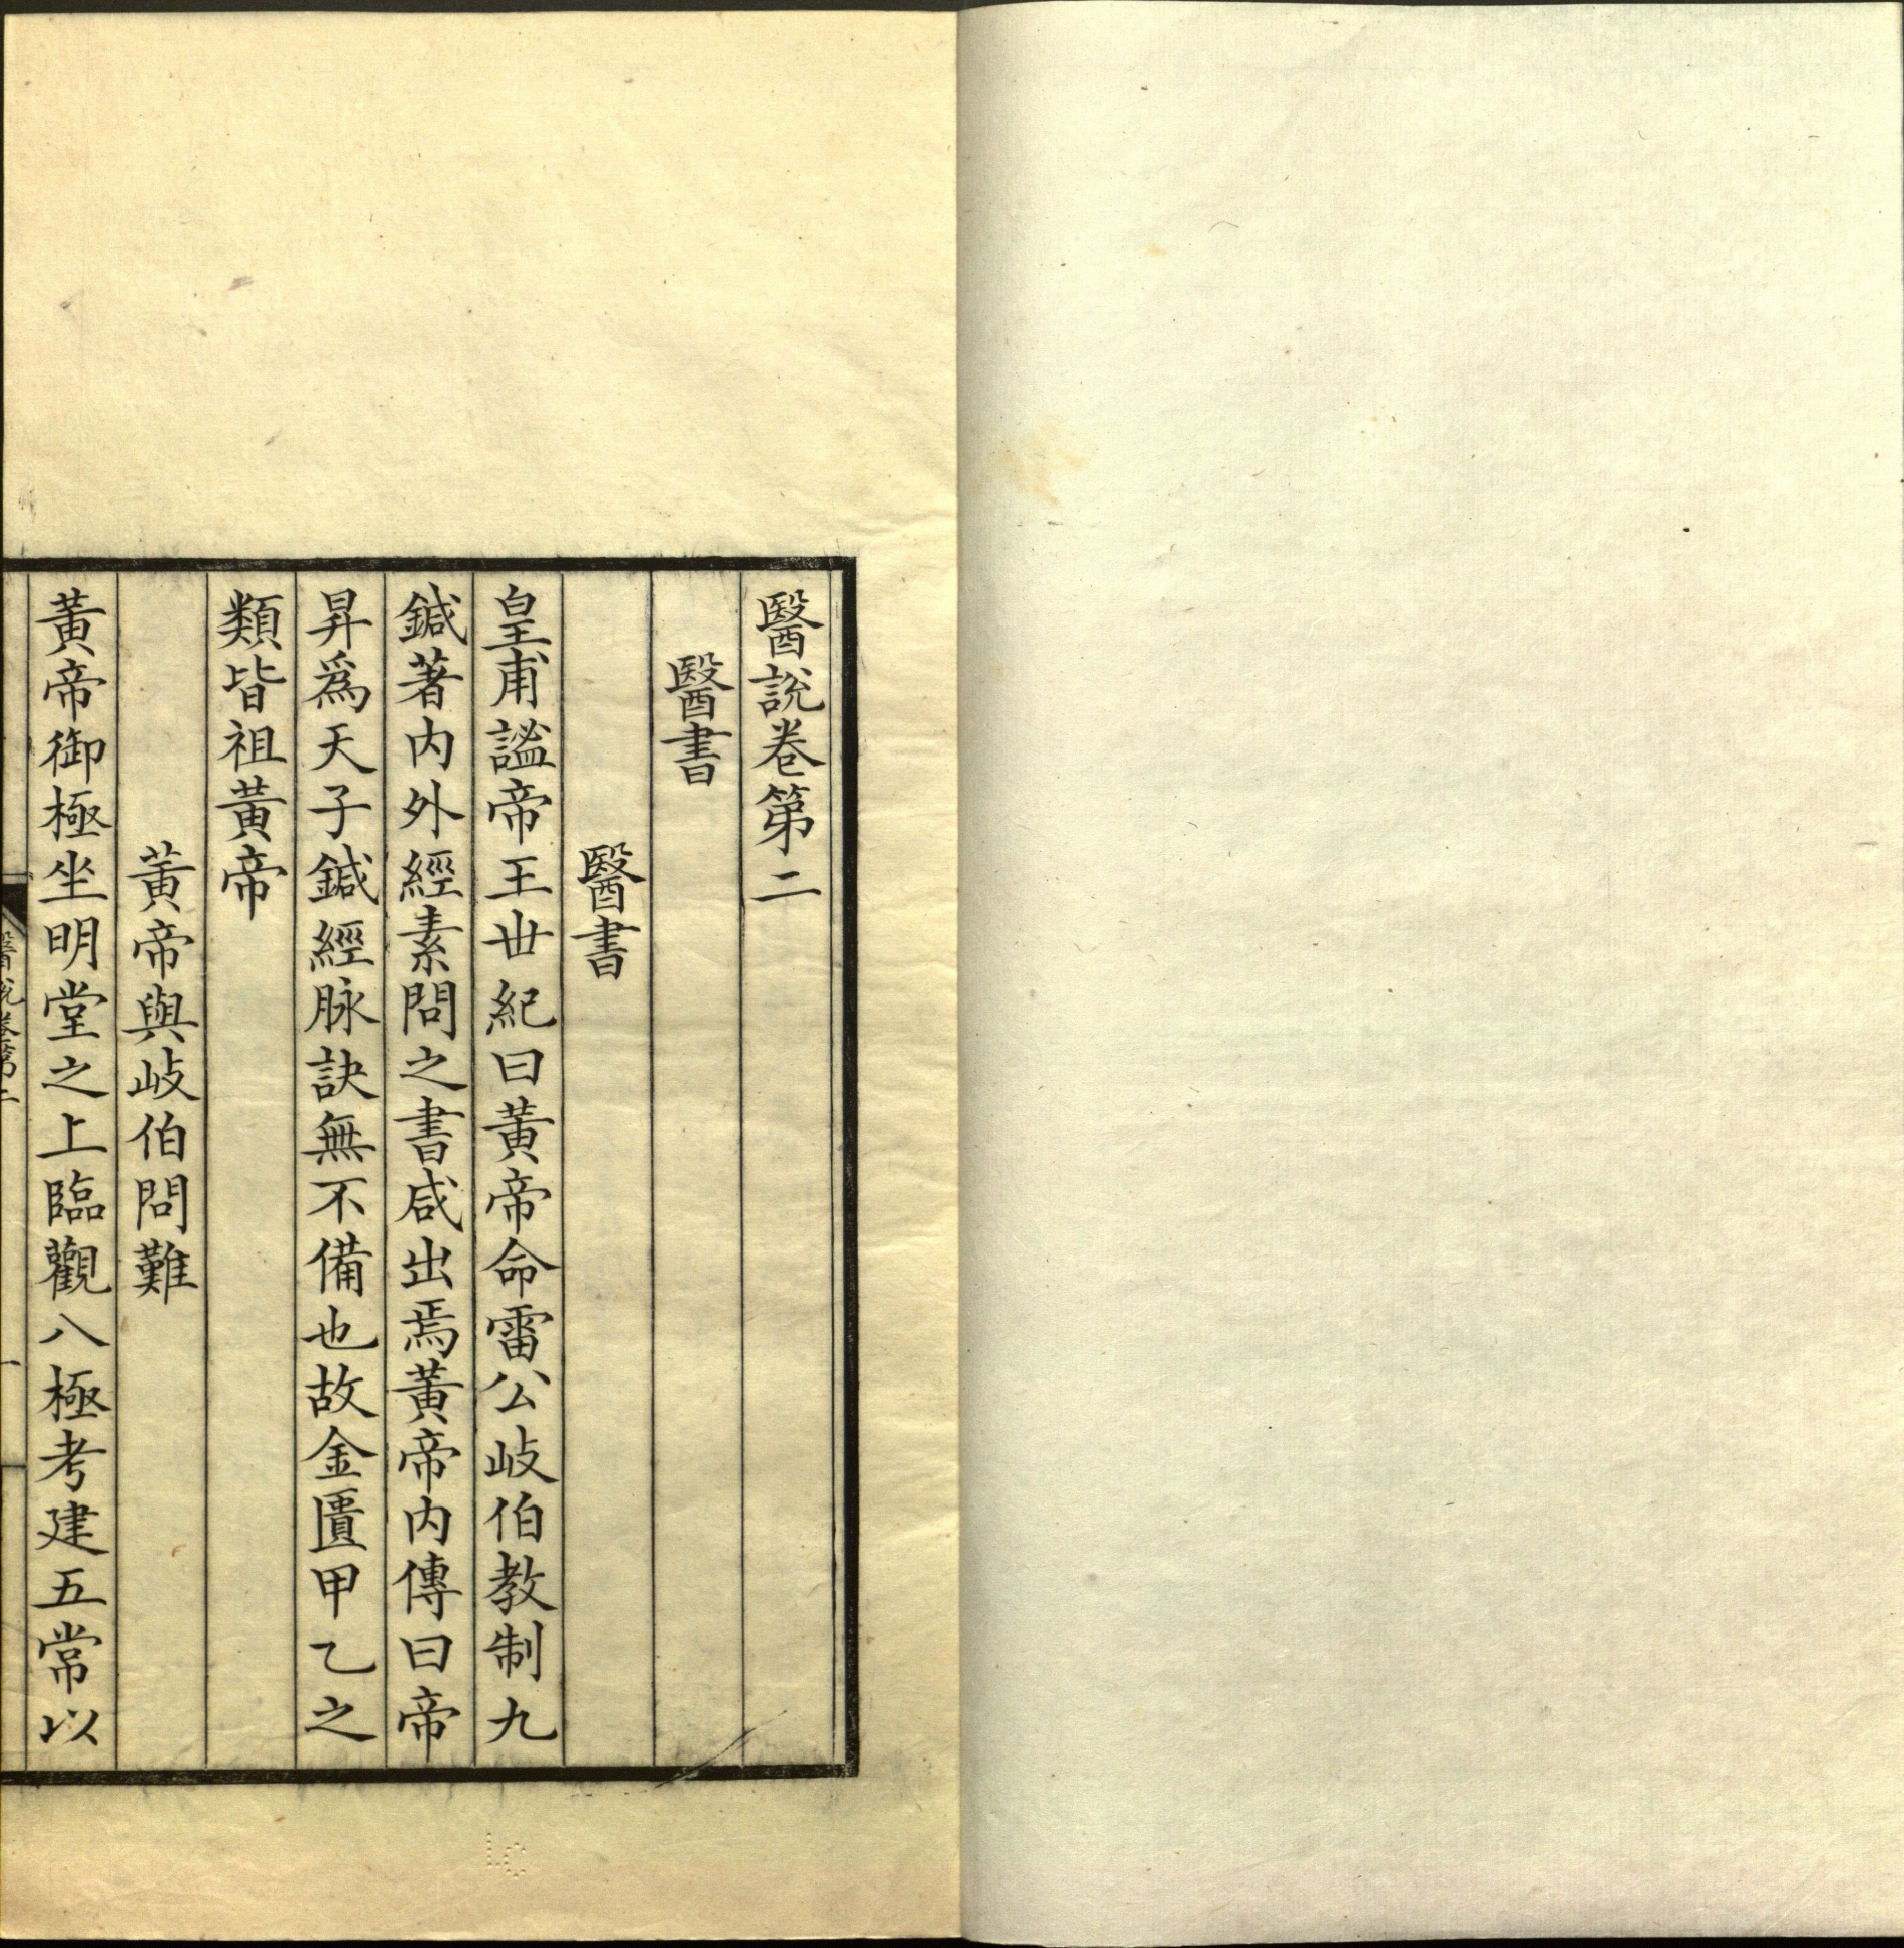 醫說卷第二
醫書
醫書
皇甫謐帝王丗紀曰黃帝命雷公岐伯教制九
鍼著内外經素問之書咸出焉黃帝内傳曰帝
昇爲天子鍼經脉訣無不備也故金匱甲乙之
類皆祖黃帝
黃帝與岐伯問難
黃帝御極坐明堂之上臨觀八極考建五常以
醫說卷第二
一
LC